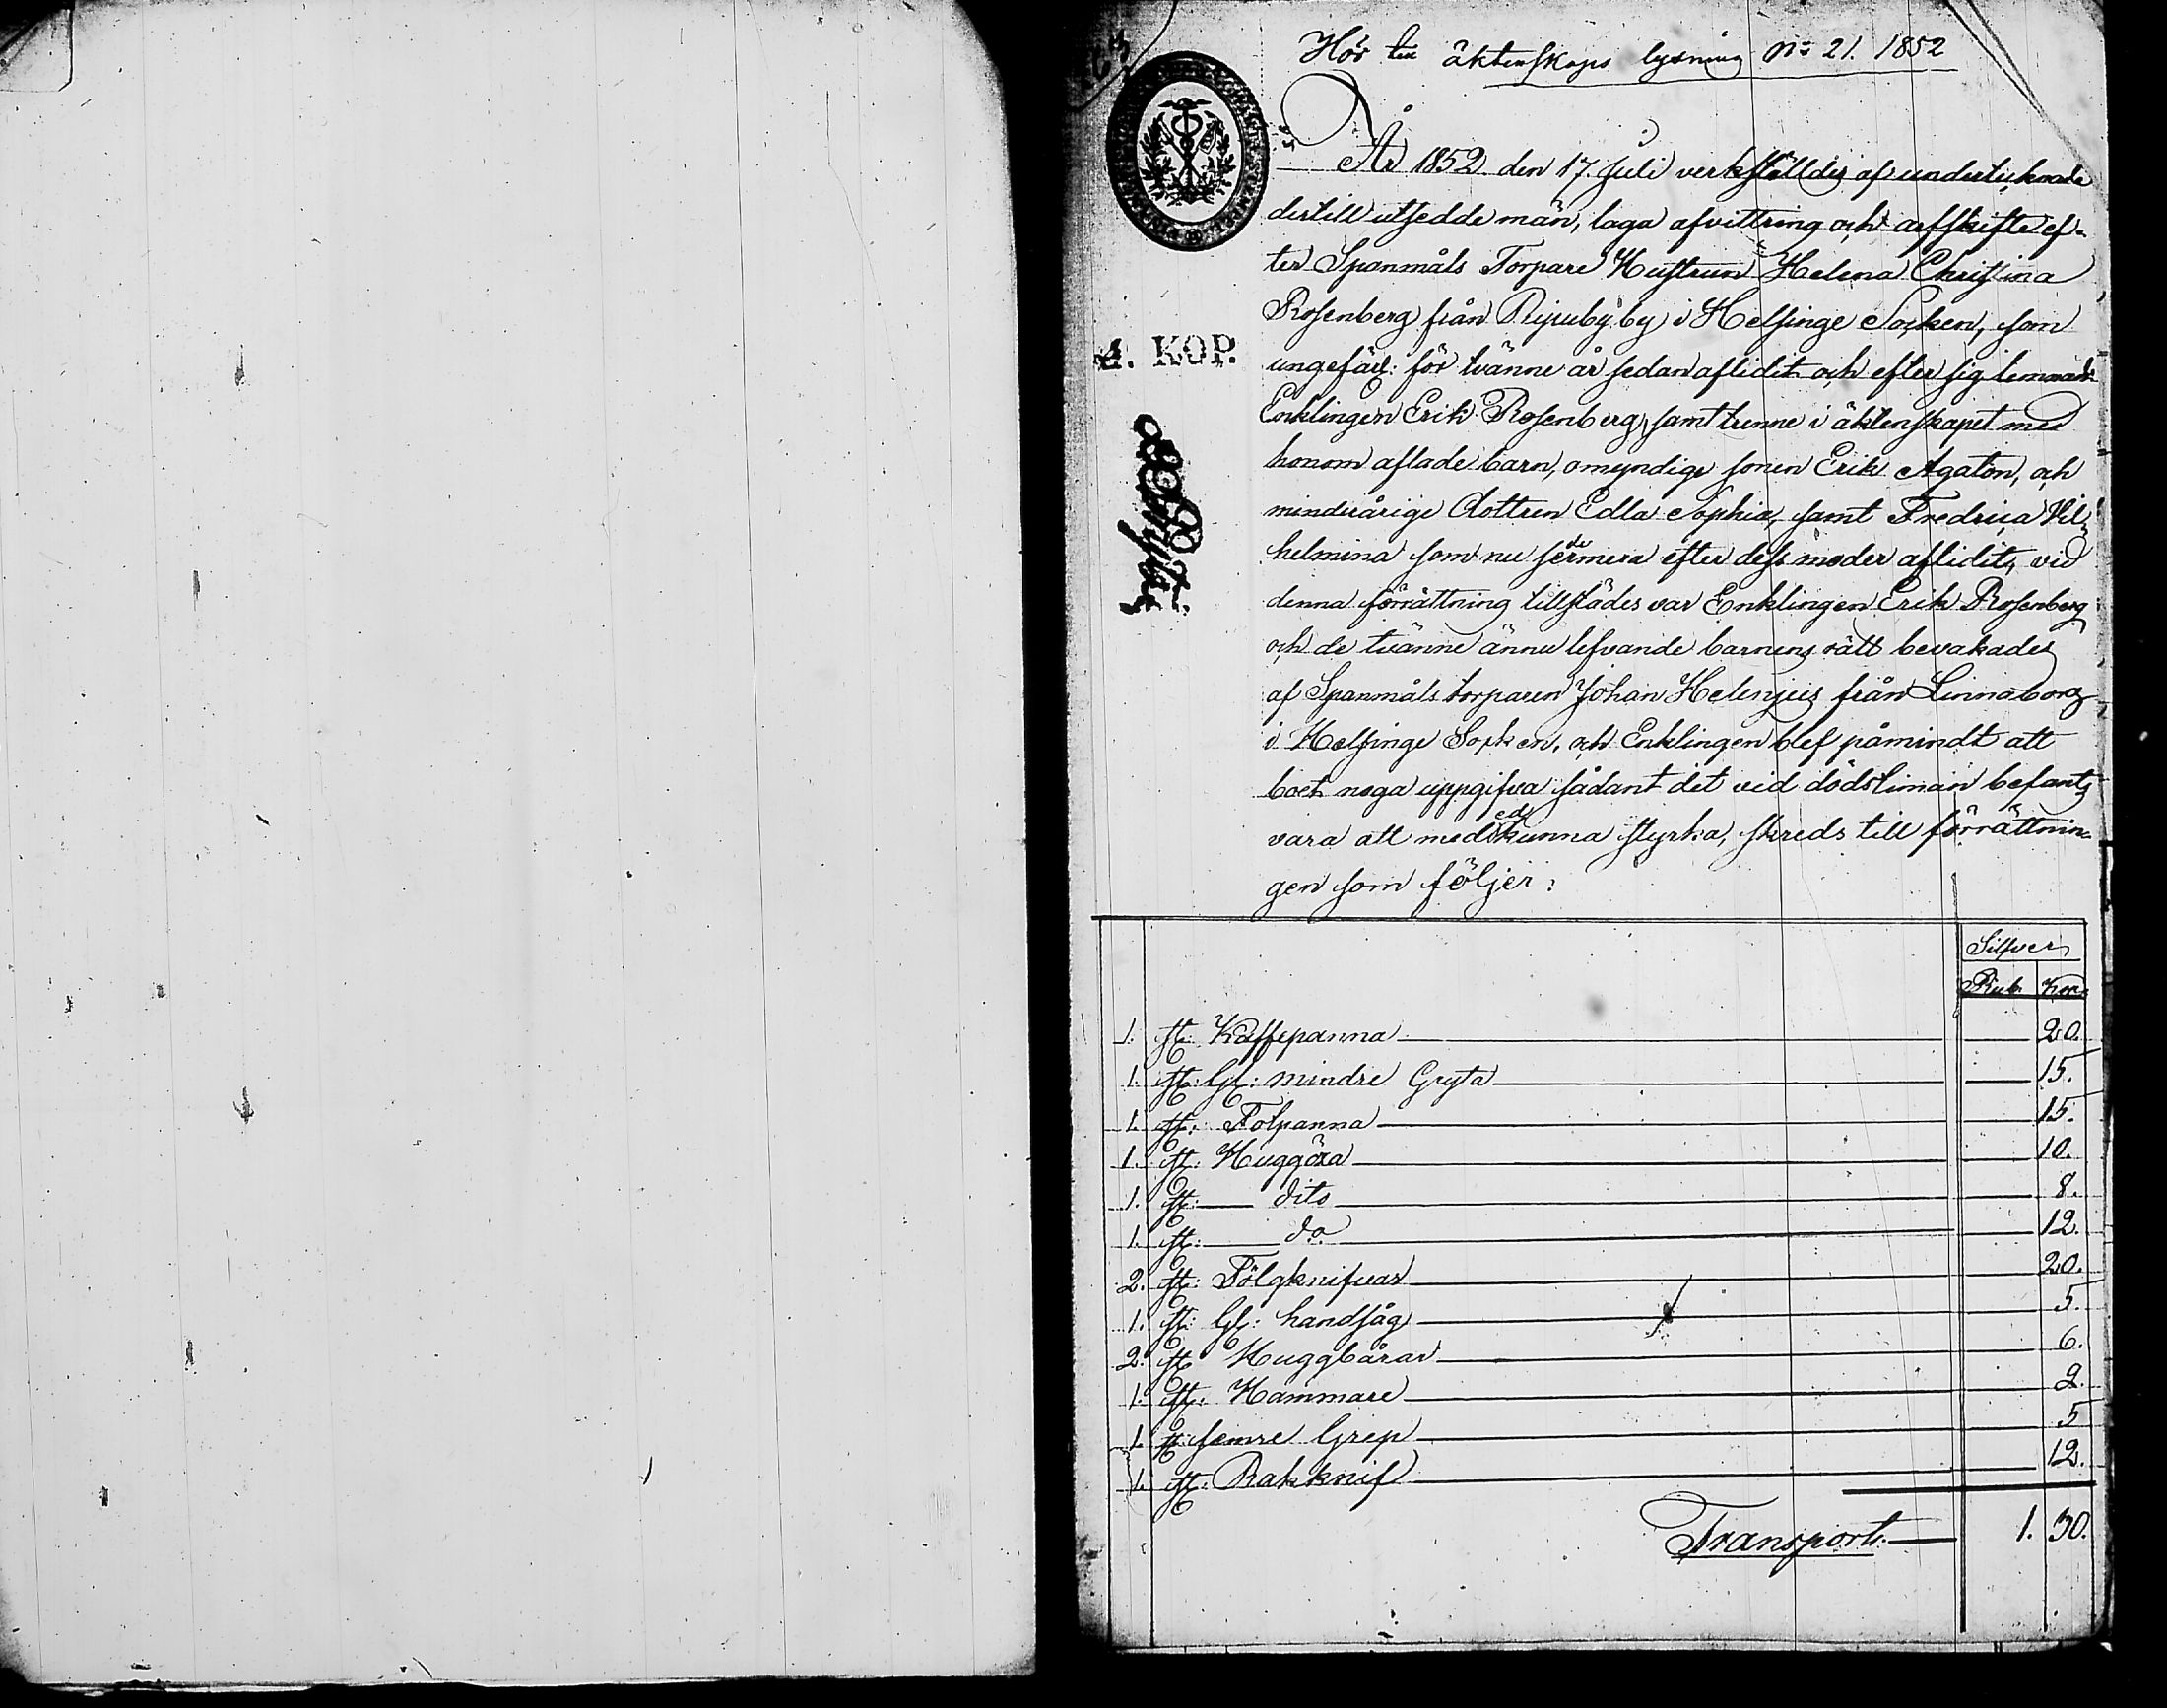 Hör till äktenskaps lysning No 21. 1852
År 1852 den 17. Juli verkställdes af undertecknade
dertill utsedde män, laga afvittring och arfskifte ef-
ter Spanmåls Torpare Hustrun Helena Christina
Rosenberg från by i Helsinge Socken, som
ungefär: för tvänne år sedan aflidit och efter sig lemnadt
Enklingen Erik Rosenberg, samt trenne i äktenskapet med
honom aflade barn, omyndige sonen Erik Agaton, och
minderårige dottren Edla Sophia, samt Fredrica Vil-
helmina som nu sedermera efter dess moder aflidit, vid
denna förrättning tillstädes var Enklingen Erik Rosenberg
och de tvänne ännu lefvande barnens rätt bevakades
af Spanmåls torparen Johan Helenius från Linnaborg
i Helsinge Socken, och Enklingen blef påmindt att
boet noga uppgifva sådant det vid dödstiman befants
vara att med ed kunna styrka, skreds till förrättnin-
gen som följer:
4. KOP.
Silfver
Rub. Kop.
1. st: Kaffepanna 20.
1. st: Gl: mindre Gryta 15.
1. st: Fotpanna 15.
1. st: Huggöxa 10.
1. st: dito 8.
1. st: do 12.
2. st: Tölgknifvar 20.
1. st: Gl: handsåg 5.
2. st Huggbårar 6.
1. st: Hammare 2.
1. st: semre Grep 5
1. st: Rakknif 12.
Transport. 1. 30.